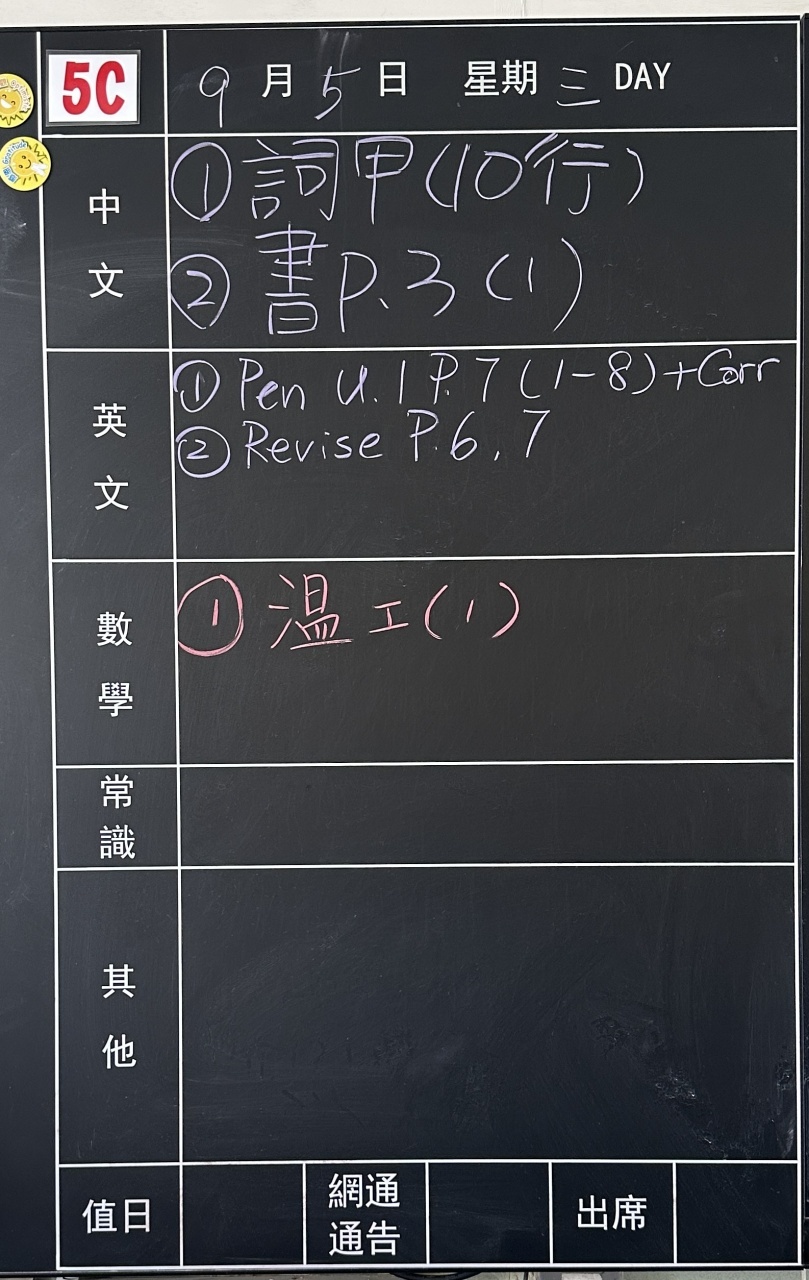 5C 9月5日 星期三 DAY
中文
①詞甲(10行)
②書P.3(1)
英文
①Pen U.1 P.7 (1-8)+Corr
②Revise P.6, 7
數學
①溫工(1)
常識
其他
值日 網通通告 出席